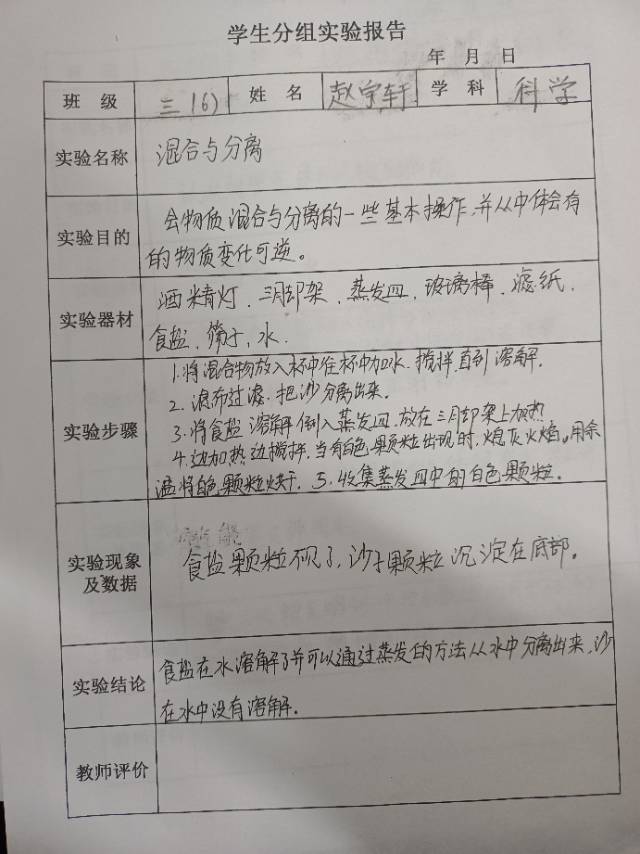 学生分组实验报告
年 月 日
班 级 三(6) 姓 名 赵宇轩 学 科 科学
实验名称 混合与分离
实验目的 会物质混合与分离的一些基本操作,并从中体会有
的物质变化可逆。
实验器材 酒精灯、三脚架、蒸发皿、玻璃棒、滤纸、
食盐、筛子、水、
实验步骤 1.将混合物放入杯中往杯中加水、搅拌直到溶解.
2.滤布过滤.把沙分离出来.
3.将食盐溶解倒入蒸发皿.放在三脚架上加热
4.边加热边搅拌,当有白色颗粒出现时,熄灭火焰。用余
温将白色颗粒烘干. 5.收集蒸发皿中的白色颗粒.
实验现象及数据 食盐颗粒不见了,沙子颗粒沉淀在底部。
实验结论 食盐在水溶解了并可以通过蒸发的方法从水中分离出来,沙
在水中没有溶解.
教师评价